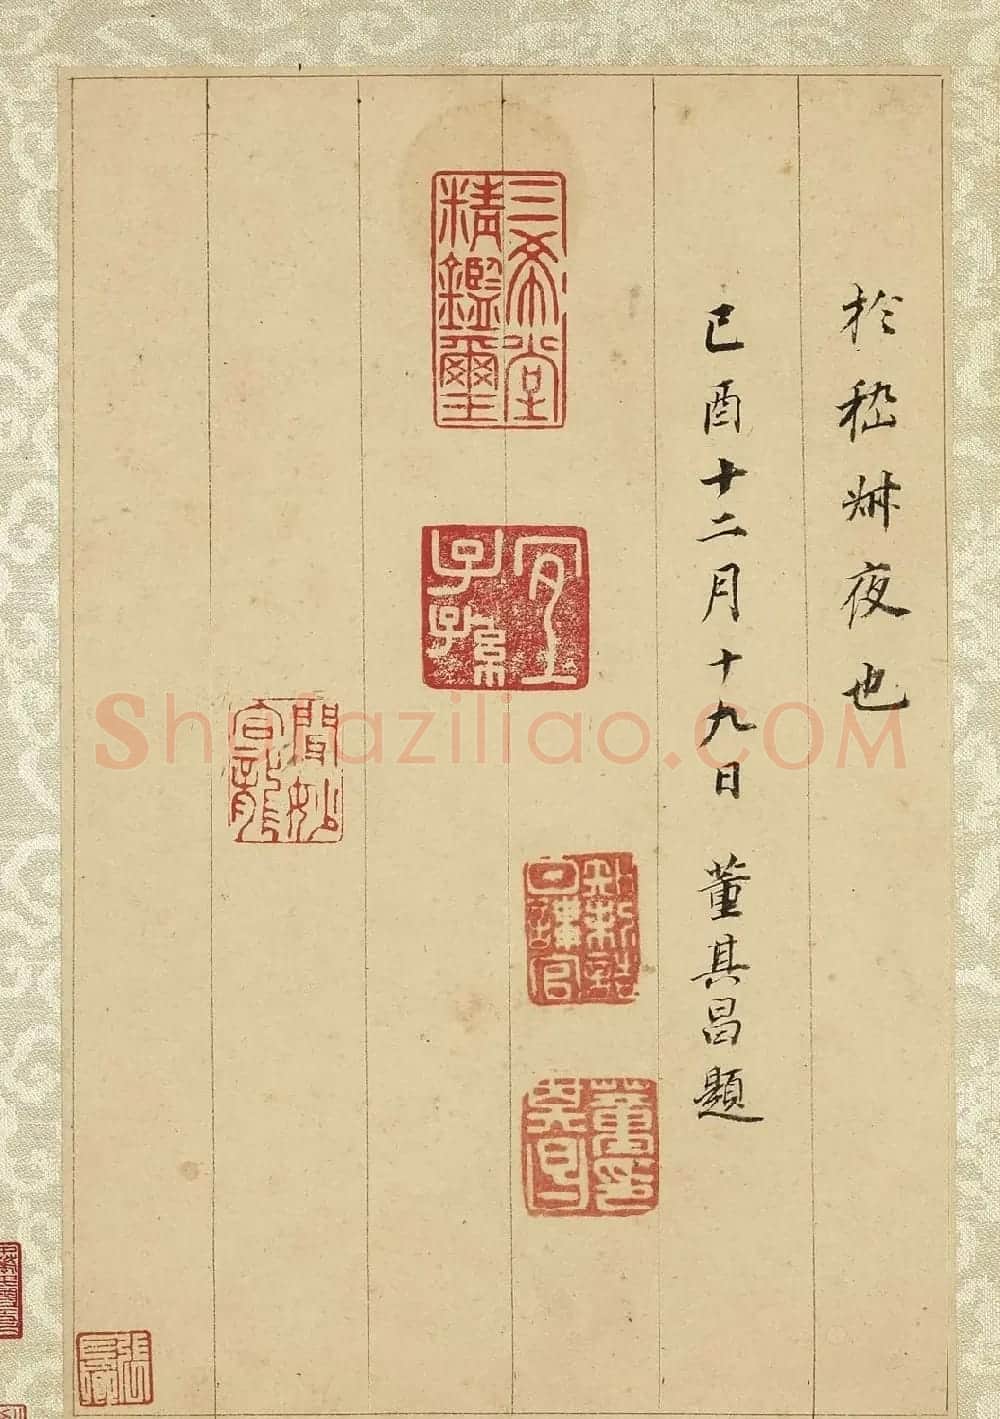 於嵇叔夜也
己酉十二月十九日 董其昌題
三希堂精鑑璽
宜子孫
知制誥日講官
董其昌印
Shufaziliao.COM